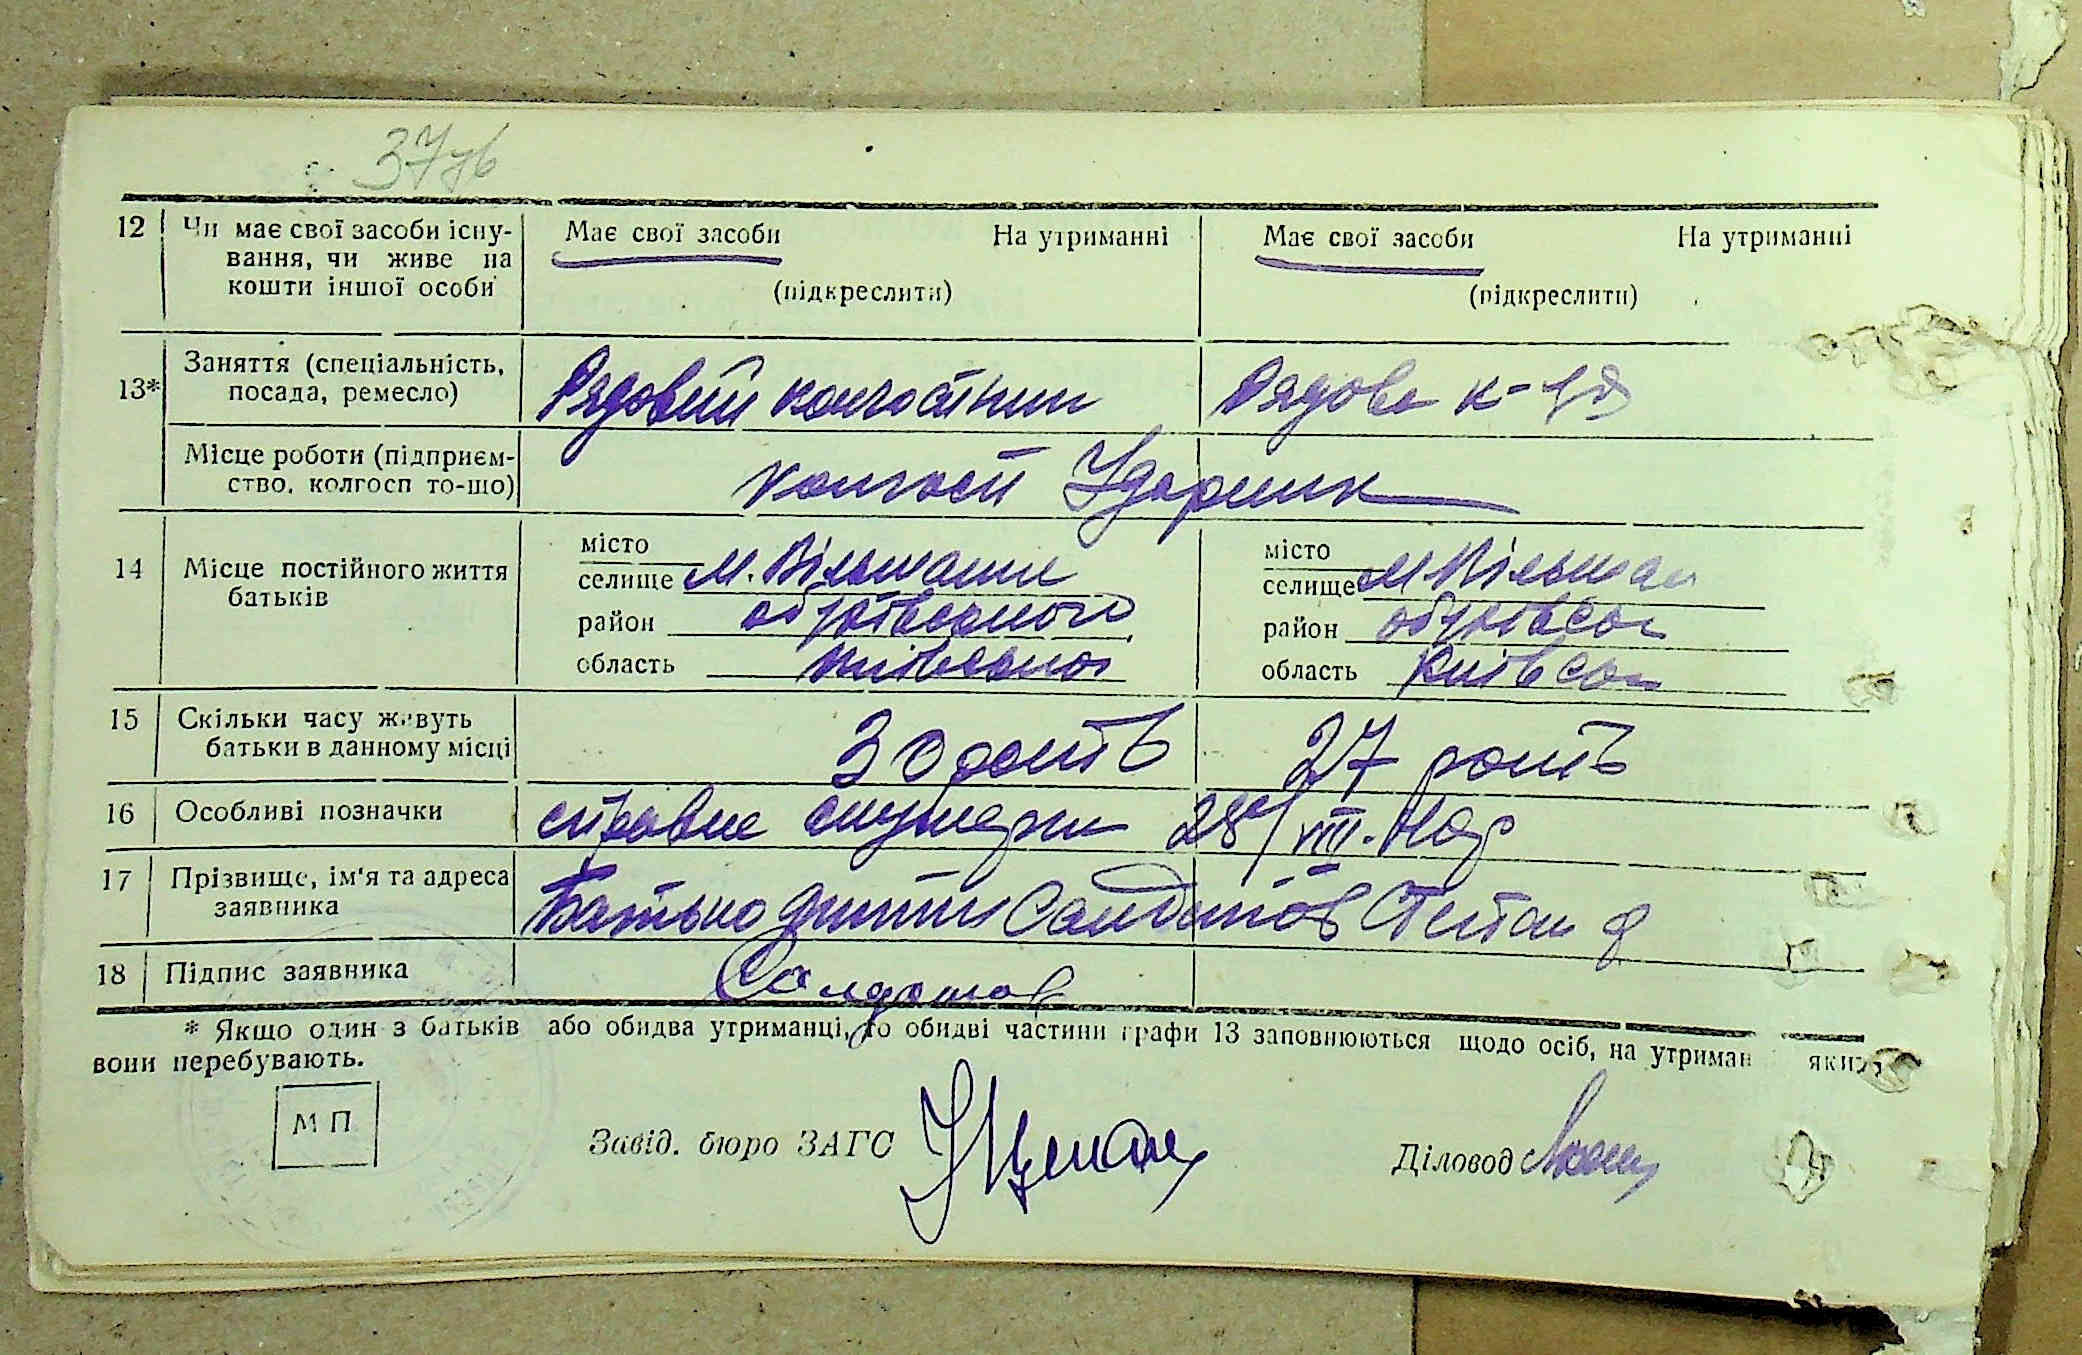 37зв
12 Чи має свої засоби існу- Має свої засоби На утриманні Має свої засоби На утриманні
вання, чи живе на
кошти іншої особи (підкреслити) (підкреслити)
13* Заняття (спеціальність,
посада, ремесло) Рядовий колгоспник Рядова к-ця
Місце роботи (підприєм-
ство, колгосп то-що) колгосп Ударник
14 Місце постійного життя місто місто
батьків селище М. Вільшанки селище М Вільшан
район обухівського район обухівсь
область київської область київсь
15 Скільки часу живуть
батьки в данному місці 30 років 27 років
16 Особливі позначки 28/VIII.
17 Прізвище, ім'я та адреса
заявника Батько дитини Солдатов Степан Ф
18 Підпис заявника Солдатов
* Якщо один з батьків або обидва утриманці, то обидві частини графи 13 заповнюються щодо осіб, на утриман яких
вони перебувають.
М П
Завід. бюро ЗАГС Діловод